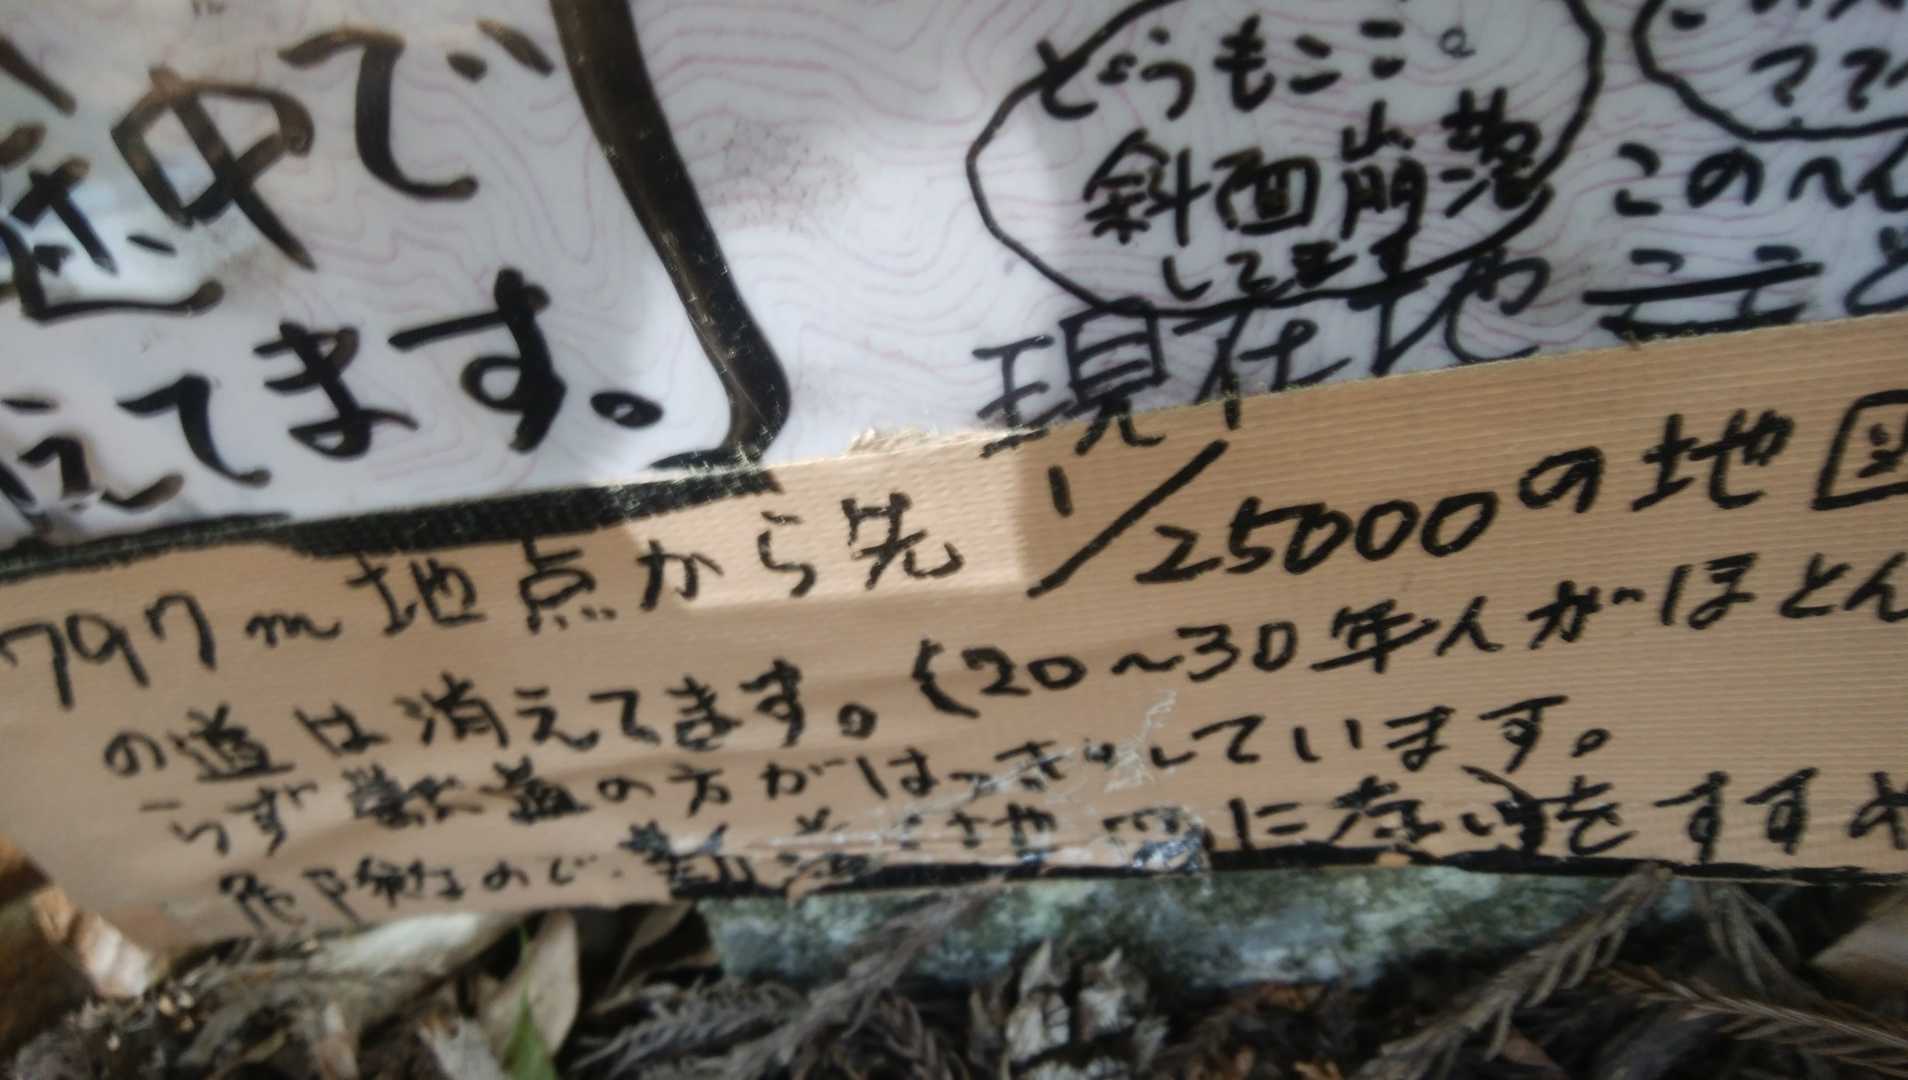 途中で
えてます。
どうもここ。
斜面崩落
してます
このへん
現在地
797m地点から先 1/25000の地図
の道は消えてきます。(20~30年人がほとん
らず獣道の方がはっきりしています。
危険なので、 地図 に をすすめ